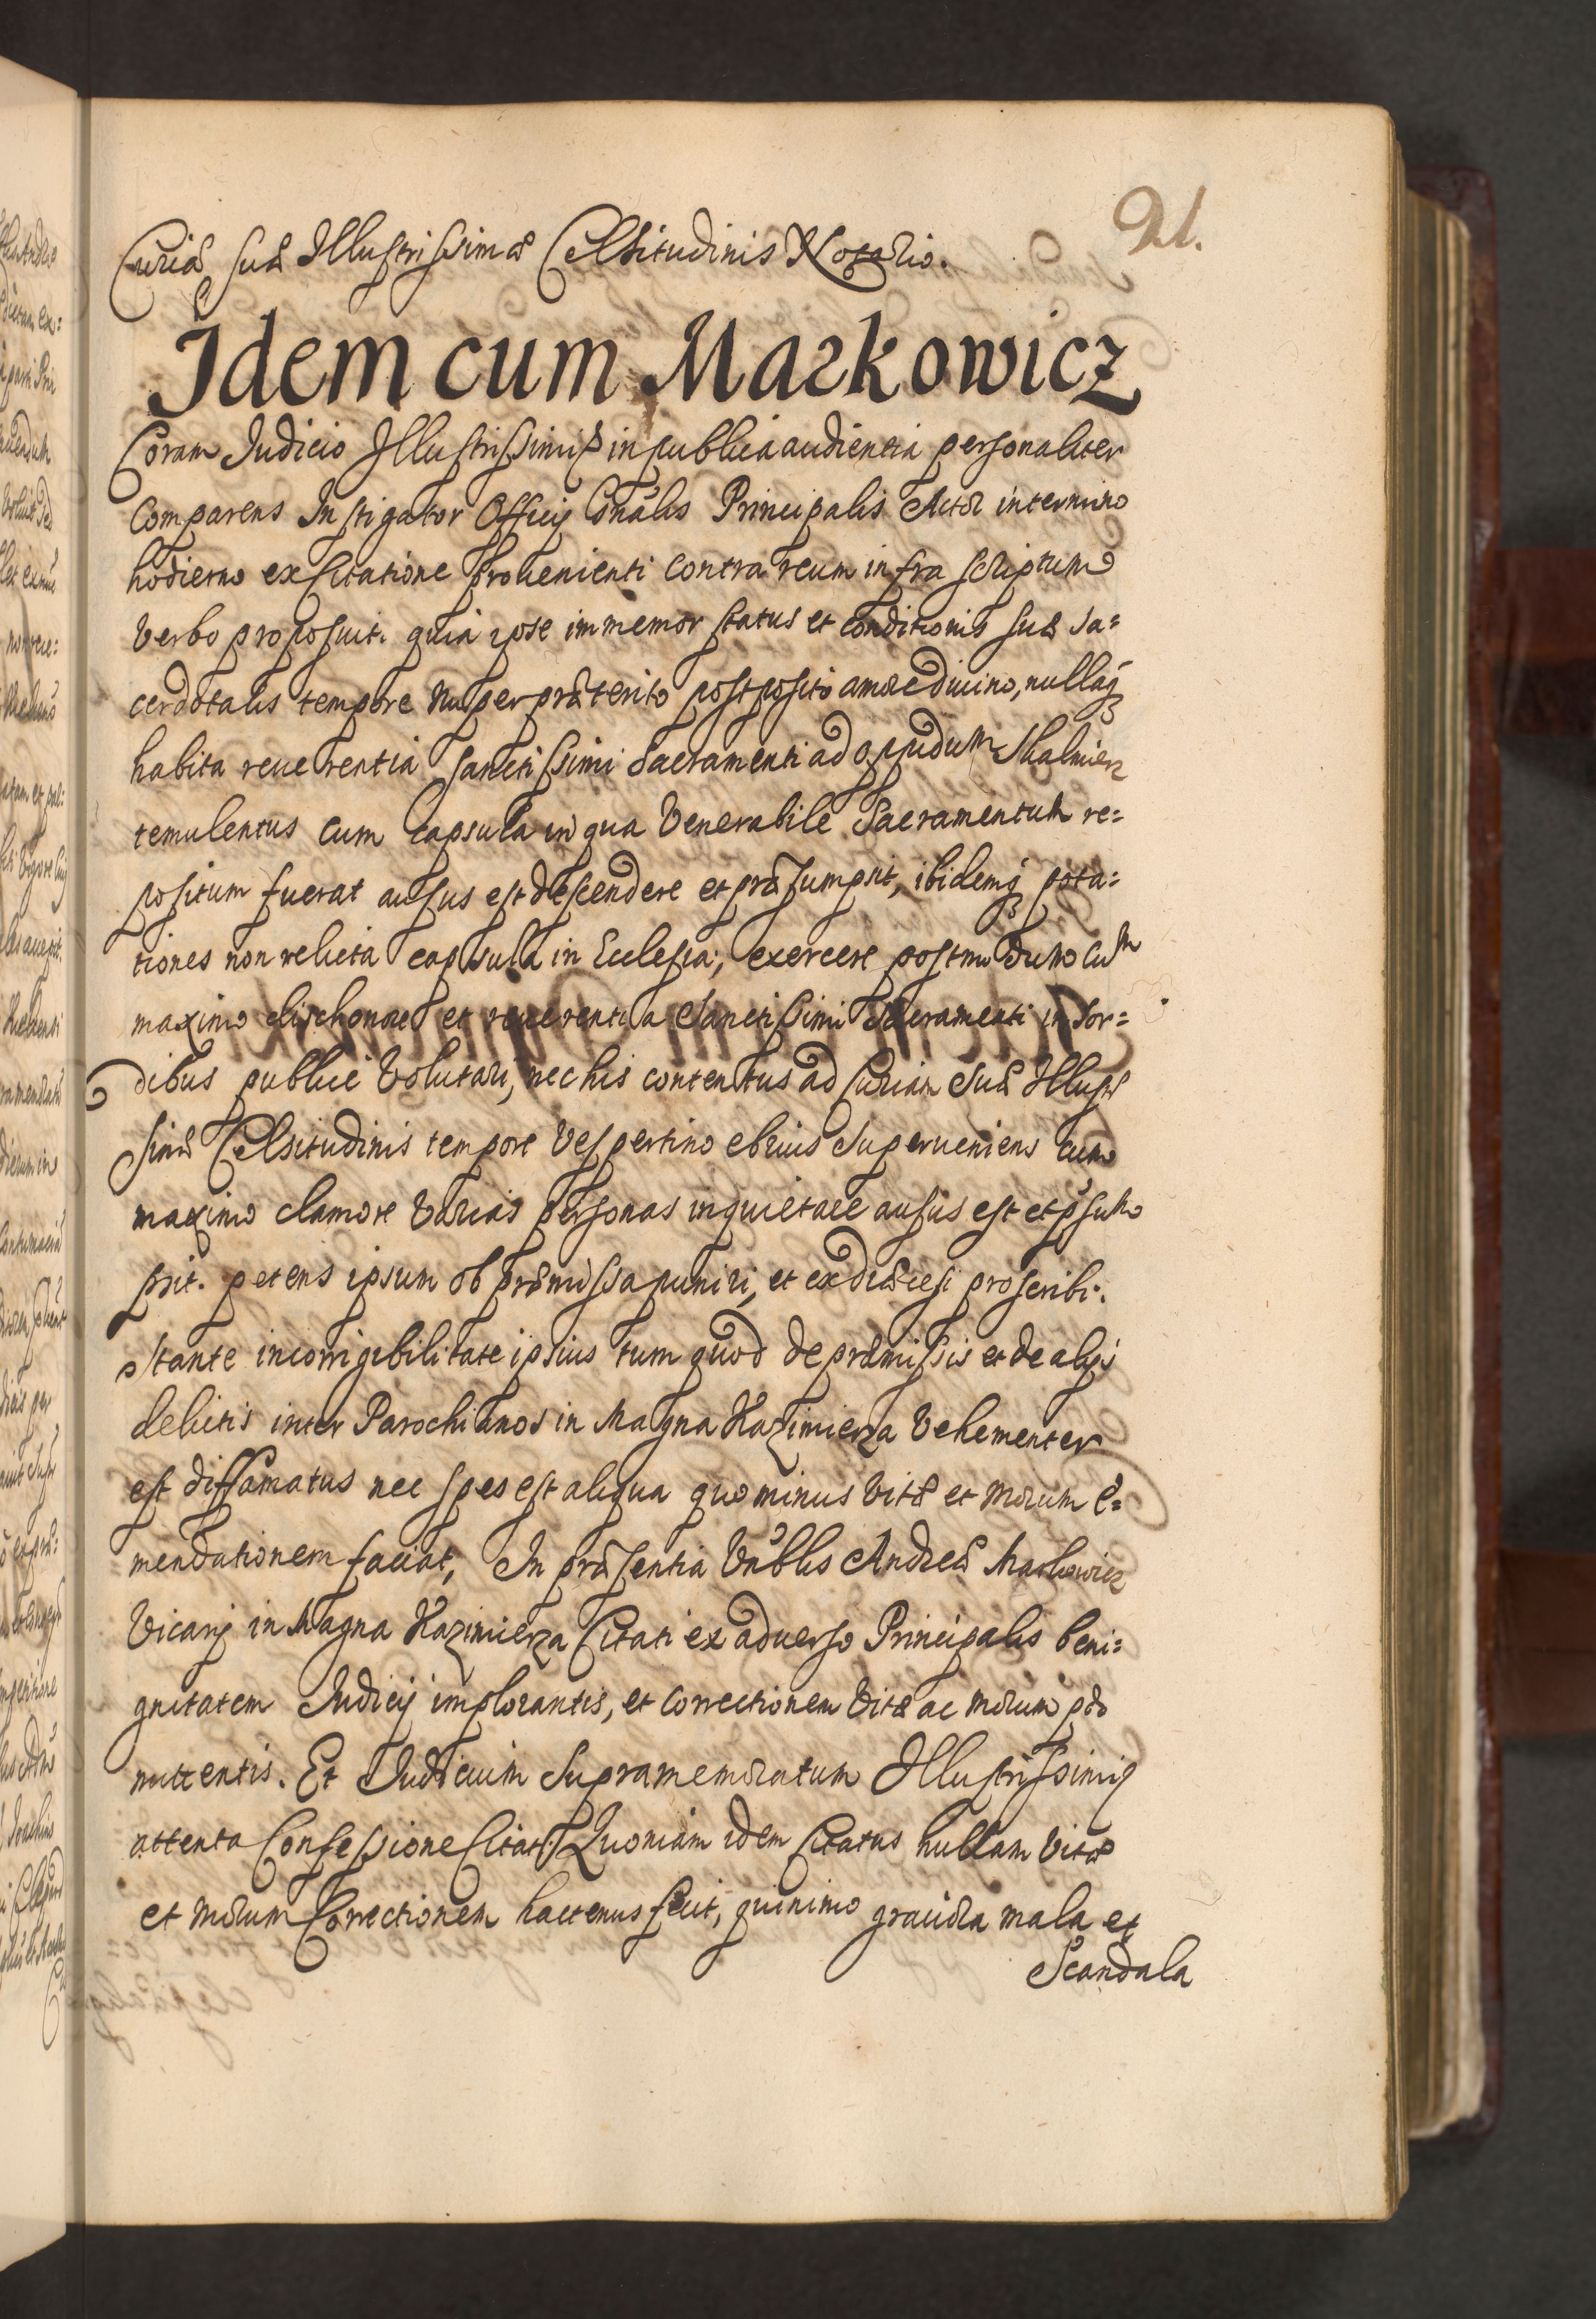 21.
Curiæ suæ Illustrissimæ Celsitudinis Notario.
Idem cum Markowicz
Coram Judicio Illustrissimi in publica audientia personaliter
Comparens Instigator Officij Gnãlis Principalis Actor in termino
hodierno ex Citatione provenienti contra reum infra scriptum
verbo proposuit. quia ipse immemor status et conditionis suæ sa=
cerdotalis tempore nuper præterito postposito amore divino, nullaq3
habita reverentia sanctissimi Sacramenti ad oppidum Skalmierz
temulentus cum capsula in qua Venerabile Sacramentum re=
positum fuerat ausus est descendere et præsumpsit, ibidemq3 pota=
tiones non relicta capsula in Ecclesia; exercere postmodum cum
maximo dischonore et reverentia Sanctissimi Sacramenti in sor=
dibus publice volutari, nec his contentus ad Curiam Suæ Illustris
simæ Celsitudinis tempore vespertino ebrius superveniens cum
maximo clamore varias personas inquietare ausus est et psum
psit. petens ipsum ob præmissa puniri, et ex diæcesi proscribi.
stante incorrigibilitate ipsius tum quod de præmissis et de alijs
delictis inter Parochianos in Magna Kazimierza vehementer
est diffamatus nec spes est aliqua quominus vitæ et morum e=
mendationem faciat, In præsentia Vnblis Andreæ Markowicz
Vicarij in Magna Kazimierza Citati ex adverso Principalis beni=
gnitatem Judicij implorantis, et correctionem vitæ ac morum pro
mittentis. Et Judicium supramemoratum Illustrissimi
attenta Confessione Citati Quoniam idem Citatus nullam vitæ
et morum Correctionem hactenus fecit, quinimo graviora mala et
Scandala